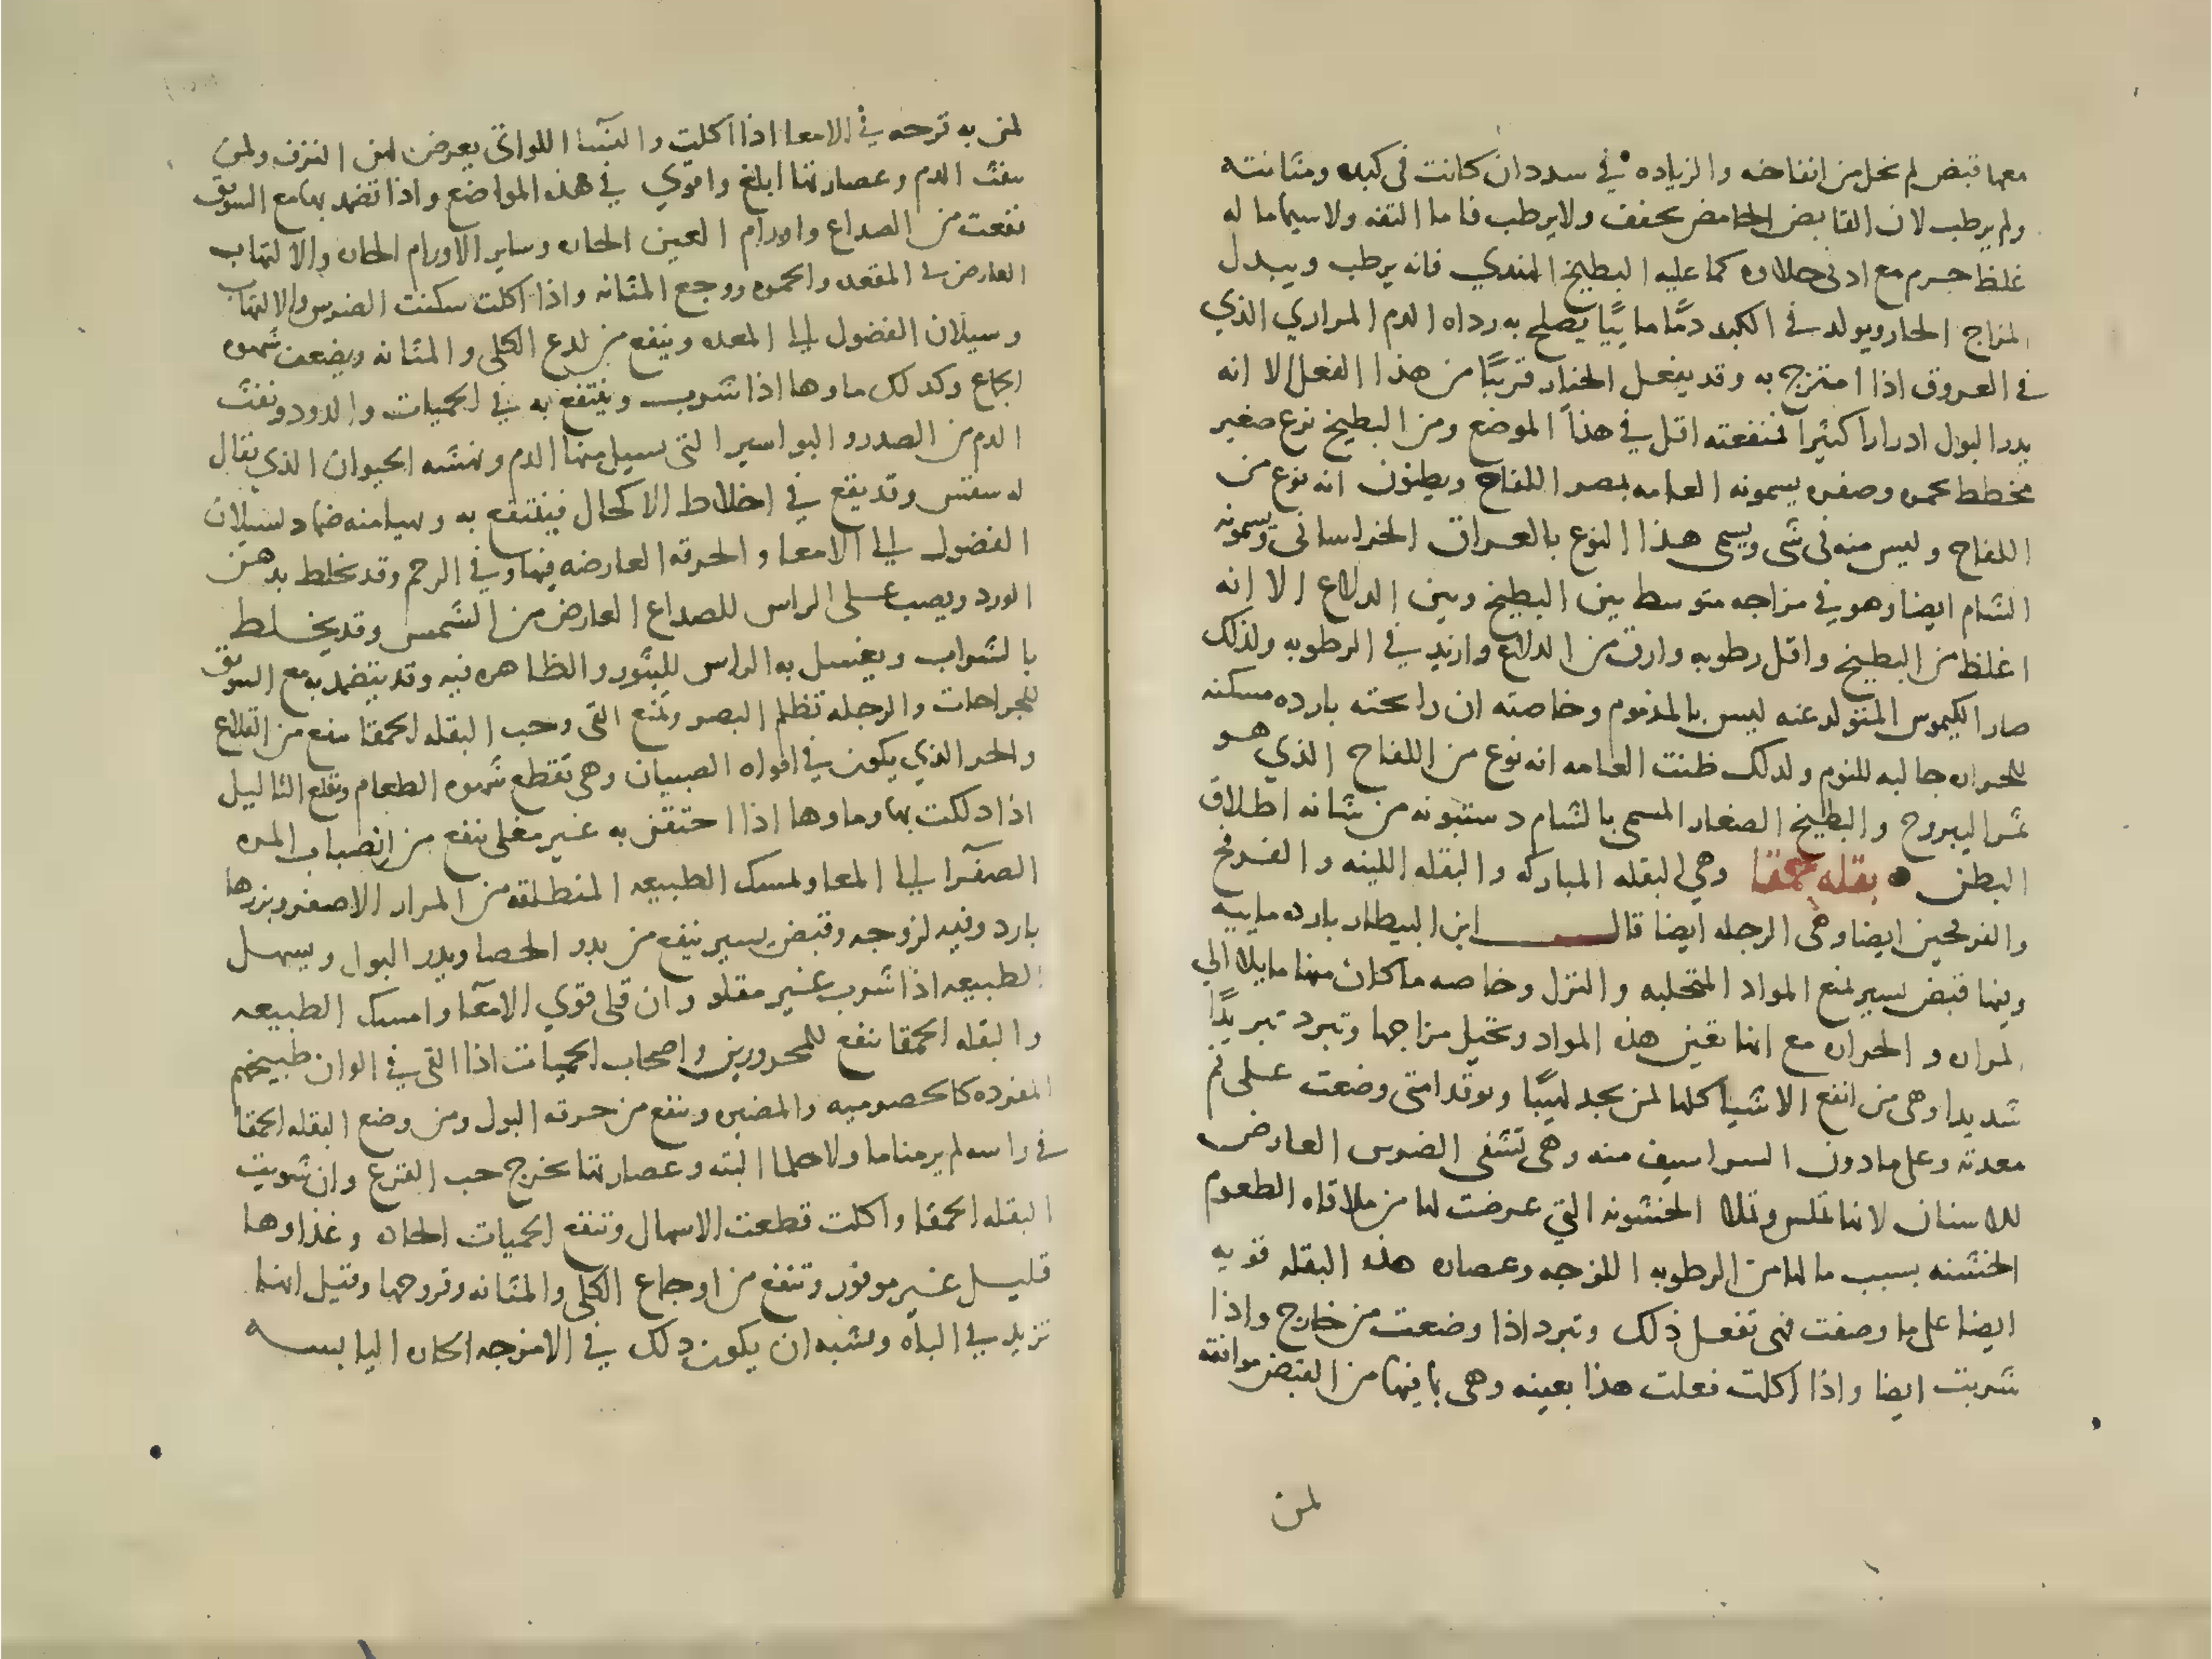 معها قبض لم يخل من انفاخه والزياده في سددان كانت في كبده ومثانته
ولم يرطب لان القابض الحامض يجفف ولا يرطب فاما التفه ولا سيما ما له
غلظ جرم مع ادنى حلاوه كما عليه البطيخ الهندي فانه يرطب ويبدل
المزاج الحار ويولد في الكبد دمًا مايئًا يصلح به رداه الدم المراري الذي
في العروق اذا امتزج به وقد يفعل الخيار قريبًا من هذا الفعل الا انه
يدر البول ادرارا كثيرا فمنفعته اقل في هذا الموضع ومن البطيخ نوع صغير
مخطط بحمره وصفره يسمونه العامه بمصر اللفاح ويظنون انه نوع من
اللفاح وليس منه في شي ويسمى هذا النوع بالعراق الخراساني ويسمونه
الشام ايضا وهو في مزاجه متوسط بين البطيخ وبين الدلاع الا انه
اغلظ من البطيخ واقل رطوبه وارق من الدلاع وازيد في الرطوبه ولذلك
صار الكيموس المتولد عنه ليس بالمذموم وخاصته ان رايحته بارده مسكنه
للحراره جالبه للنوم ولدلك ظنت العامه انه نوع من اللفاح الذي هو
ثمر اليبروح والبطيخ الصغار المسمى بالشام دستبونه من شانه اطلاق
البطن • بقله حمقا وهي البقله المباركه والبقله اللينه والفرفخ
والفرفحين ايضا وهي الرجله ايضا قال ابن البيطار بارده ماييه
وفيها قبض يسير لمنع المواد المتحلبه والنزل وخاصه ما كان منها مايلا الي
المراره والحراره مع انها تغير هذه المواد وتحيل مزاجها وتبرد تبريدًا
شديدا وهي من انفع الاشيا كلها لمن يجد لهيبًا وتوقدا متى وضعت على فم
معدته وعلى مادون السراسيف منه وهي تشفي الضرس العارض
للاسنان لانها تملس وتملا الخشونه التي عرضت لها من ملاقاه الطعوم
الخشنه بسبب ما لها من الرطوبه اللزجه وعصاره هذه البقله قويه
ايضا على ما وصفت فهي تفعل ذلك وتبرد اذا وضعت من خارج واذا
شربت ايضا واذا اكلت فعلت هذا بعينه وهي بما فيها من القبض موافقه
لمن
لمن به قرحه في الامعا اذا اكلت والنسآ اللواتي يعرض لهن النزف ولمن
ينفث الدم وعصارتها ابلغ واقوي في هذه المواضع واذا تضمد بها مع السويق
نفعت من الصداع واورام العين الحاره وساير الاورام الحاره والالتهاب
العارض في المقعده والحمره ووجع المثانه واذا اكلت سكنت الضرس والالتهاب
وسيلان الفضول الي المعده وينفع من لدع الكلى والمثانه ويضعف شهوه
الجماع وكدلك ماوها اذا شرب وينتفع به في الحميات والدود ونفث
الدم من الصدر والبواسير التي يسيل منها الدم ونهشه الحيوان الذي يقال
له سفنس وقد يقع في اخلاط الاكحال فينتفع به وتهيا منه ضماد لسيلان
الفضول الي الامعا والحرقه العارضه فيها وفي الرحم وقد يخلط بدهن
الورد ويصب على الراس للصداع العارض من الشمس وقد يخلط
بالشراب ويغسل به الراس للبثور الظاهره فيه وقد يتضمد به مع السويق
للجراحات والرجله تظلم البصر وتمنع القى وحب البقله الحمقا ينفع من القلاع
والحر الذي يكون في افواه الصبيان وهي تقطع شهوه الطعام وتقلع الثاليل
اذا دلكت بها وماوها اذا احتقن به غير مغلى ينفع من انصباب المره
الصفرآ الي المعا ولمسك الطبيعه المنطلقه من المرار الاصفر وبزرها
بارد وفيه لزوجه وقبض يسير ينفع من بدر الحصا ويدر البول ويسهل
الطبيعه اذا شرب غير مقلو وان قلى قوي الامعآ وامسك الطبيعه
والبقله الحمقا تنفع للمحرورين واصحاب الحميات اذا القى في الوان طبيخهم
المفرده كالحصرميه والمضيره وينفع من حرقه البول ومن وضع البقله الحمقا
في راسه لم ير مناما ولا حلما البته وعصارتها تخرج حب القرع وان شويت
البقله الحمقا واكلت قطعت الاسهال وتنفع الحميات الحاده وغذاوها
قليل غير موفور وتنفع من اوجاع الكلى والمثانه وقروحها وقيل انها
تزيد في الباه ويشبه ان يكون دلك في الامزجه الحاره اليابسه